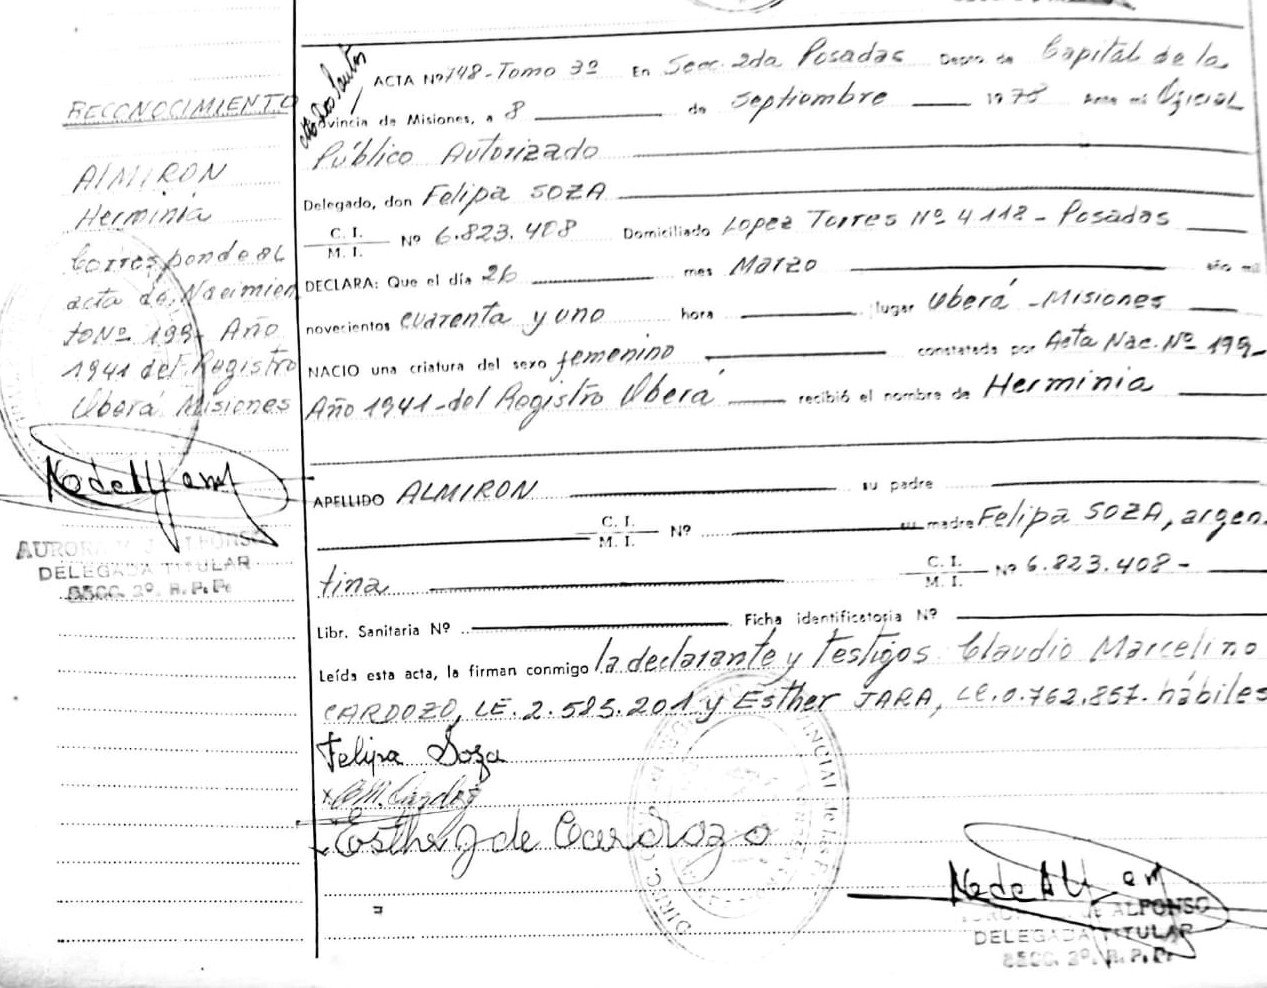 RECONOCIMIENTO
ALMIRON
Herminia
Corresponde al
acta de Nacimien
to Nº 199- Año
1941 del Registro
Oberá Misiones
AURORA ALFONSO
DELEGADA TITULAR
SECC. 2º. R. P. P.
ACTA Nº 748-Tomo 3º En Secc. 2da Posadas Depto de Capital de la
Provincia de Misiones, a 8 de septiembre 1978 Ante mi Oficial
Público Autorizado
Delegado, don Felipa SOZA
C. I.
M. I. Nº 6.823.408 Domiciliado Lopez Torres Nº 4118- Posadas
DECLARA: Que el día 26 mes Marzo año mil
novecientos cuarenta y uno hora lugar Oberá -Misiones
NACIO una criatura del sexo femenino constatada por Acta Nac. Nº 199-
Año 1941-del Registro Oberá recibió el nombre de Herminia
APELLIDO ALMIRON su padre
C. I.
M. I. Nº su madre Felipa SOZA, argen.
tina C. I.
M. I. Nº 6.823.408-
Libr. Sanitaria Nº Ficha identificatoria Nº
Leída esta acta, la firman conmigo la declarante y testigos Claudio Marcelino
CARDOZO, LE. 2.585.201 y Esther JARA, LC.0.762.857. hábiles
Felipa Soza
Esther J de Cardozo
DE ALFONSO
DELEGADA TITULAR
SECC. 2º. R. P. P.